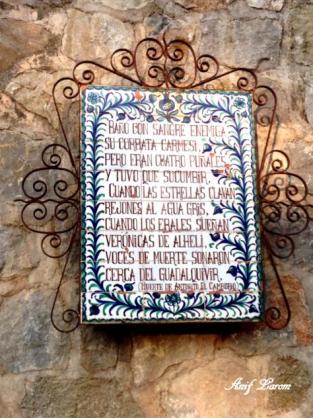 BAÑÓ CON SANGRE ENEMIGA
SU CORBATA CARMESÍ,
PERO ERAN CUATRO PUÑALES
Y TUVO QUE SUCUMBIR.
CUANDO LAS ESTRELLAS CLAVAN
REJONES AL AGUA GRIS,
CUANDO LOS ERALES SUEÑAN
VERÓNICAS DE ALHELÍ,
VOCES DE MUERTE SONARON
CERCA DEL GUADALQUIVIR.
(MUERTE DE ANTOÑITO EL CAMBORIO)
Anif Larom